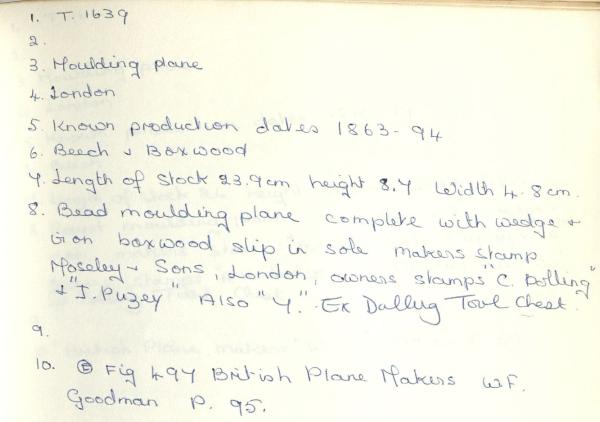 1. T. 1639
2.
3. Moulding plane
4. London
5. Known production dates 1863-94
6. Beech & Boxwood
7. Length of stock 23.9cm height 8.7 Width 4.8cm.
8. Bead moulding plane complete with wedge &
iron boxwood slip in sole makers stamp
Moseley & Sons, London, owners stamps "C. Dolling"
& "J. Puzey" Also "7". Ex Dalling Tool Chest.
9.
10. © Fig 497 British Plane Makers W.F.
Goodman P. 95.